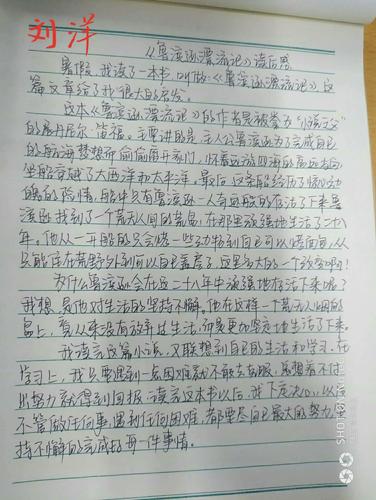 刘洋
《鲁滨逊漂流记》读后感
暑假,我读了一本书,叫做《鲁滨逊漂流记》,这
篇文章给了我很大的启发。
这本《鲁滨逊漂流记》的作者是被誉为“小说之父”
的丹尼尔·笛福。主要讲的是:主人公鲁滨逊为了完成自己
的航海梦想而偷偷离开家门,怀着远游四海的高远志向
坐船穿越了大西洋和太平洋。最后,这条船经历了惊心动
魄的险情,船中只有鲁滨逊一人奇迹般的存活了下来。鲁
滨逊找到了一个荒无人间的荒岛,在那里顽强地生活了二十八
年。他从一开始的只会烤一些动物到自己可以烤面包,从
只能住在荒野外到可以自己盖房子,这是多大的一个改变啊!
为什么鲁滨逊会在这二十八年中顽强地存活下来呢?
我想,是他对生活的坚持不懈。他在这样一个荒无人烟的
岛上,看从来没有放弃过生活,而是更加坚定地生活了下来。
我读完这篇小说,又联想到自己的生活和学习。在
学习上,我只要遇到一点困难就不敢去克服,总想着不付
出努力就得到回报。读完这本书以后,我下定决心,以后
不管做任何事,遇到任何困难,都要尽自己最大的努力,坚
持不懈的完成好每一件事情。
SHOT ON